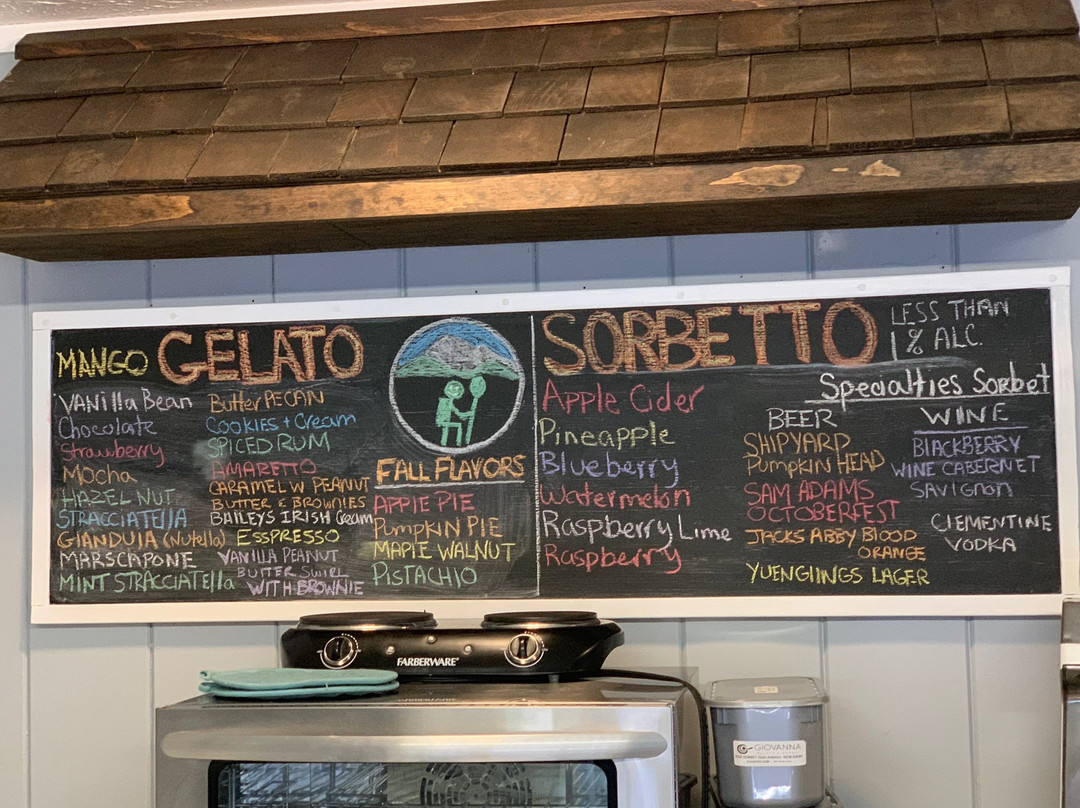 MANGO GELATO
VANIlla Bean
Chocolate
Strawberry
Mocha
HAZEL NUT
STRACCIATEllA
GIANDUIA (Nutella)
MARSCAPONE
MINT STRACCIATElla
Butter PECAN
COOKIES + Cream
SPICED RUM
AMARETTO
CARAMEL W PEANUT
BUTTER & BROWNIES
BAILEYS IRISH Cream
ESSPRESSO
VANILLA PEANUT
BUTTER SWIRL
WITH BROWNIE
FALL FLAVORS
APPlE PIE
PUMPKIN PIE
MAPlE WALNUT
PISTACHIO
SORBETTO
LESS THAN
1% ALC.
Apple Cider
Pineapple
Blueberry
Watermelon
Raspberry Lime
Raspberry
Specialties Sorbet
BEER
SHIPYARD
PUMPKIN HEAD
SAM ADAMS
OCTOBERFEST
JACKS ABBY BlOOD
ORANGE
YUENGlINGS LAGER
WINE
BlACKBERRY
WINE CABERNET
SAVIGNON
ClEMENTINE
VODKA
FARBERWARE
GIOVANNA